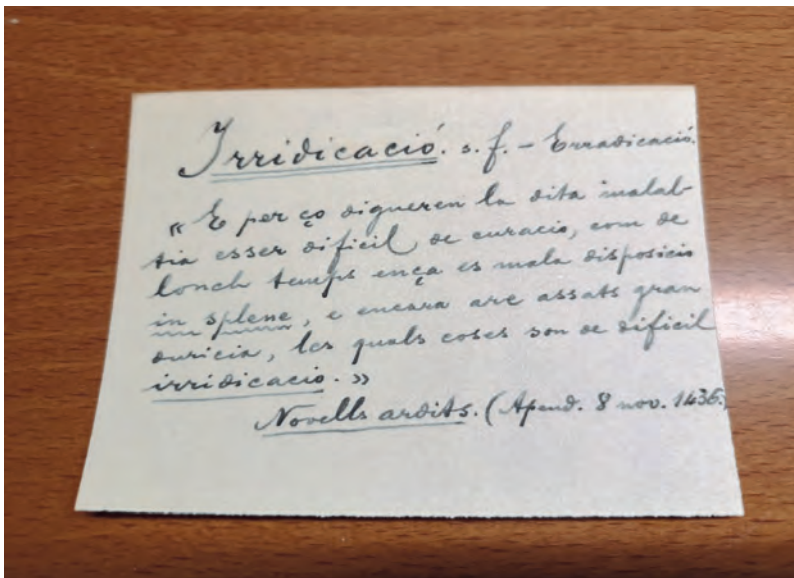 Irridicació. s. f. – Erradicació.
« E per ço digueren la dita malal-
tia esser dificil de curacio, com de
lonch temps ença es mala disposicio
in splene, e encara are assats gran
duricia, les quals coses son de dificil
irridicacio. »
Novells ardits. (Apend. 8 nov. 1436.)